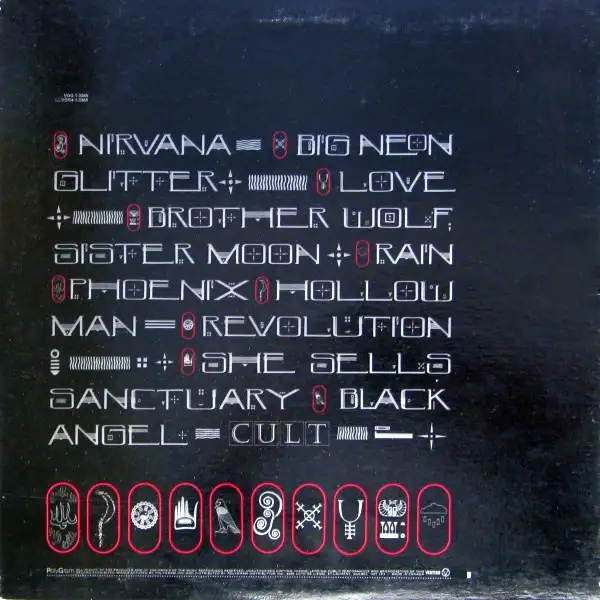 NIRVANA BIG NEON
GLITTER LOVE
BROTHER WOLF,
SISTER MOON RAIN
PHOENIX HOLLOW
MAN REVOLUTION
SHE SELLS
SANCTUARY BLACK
ANGEL CULT
PolyGram